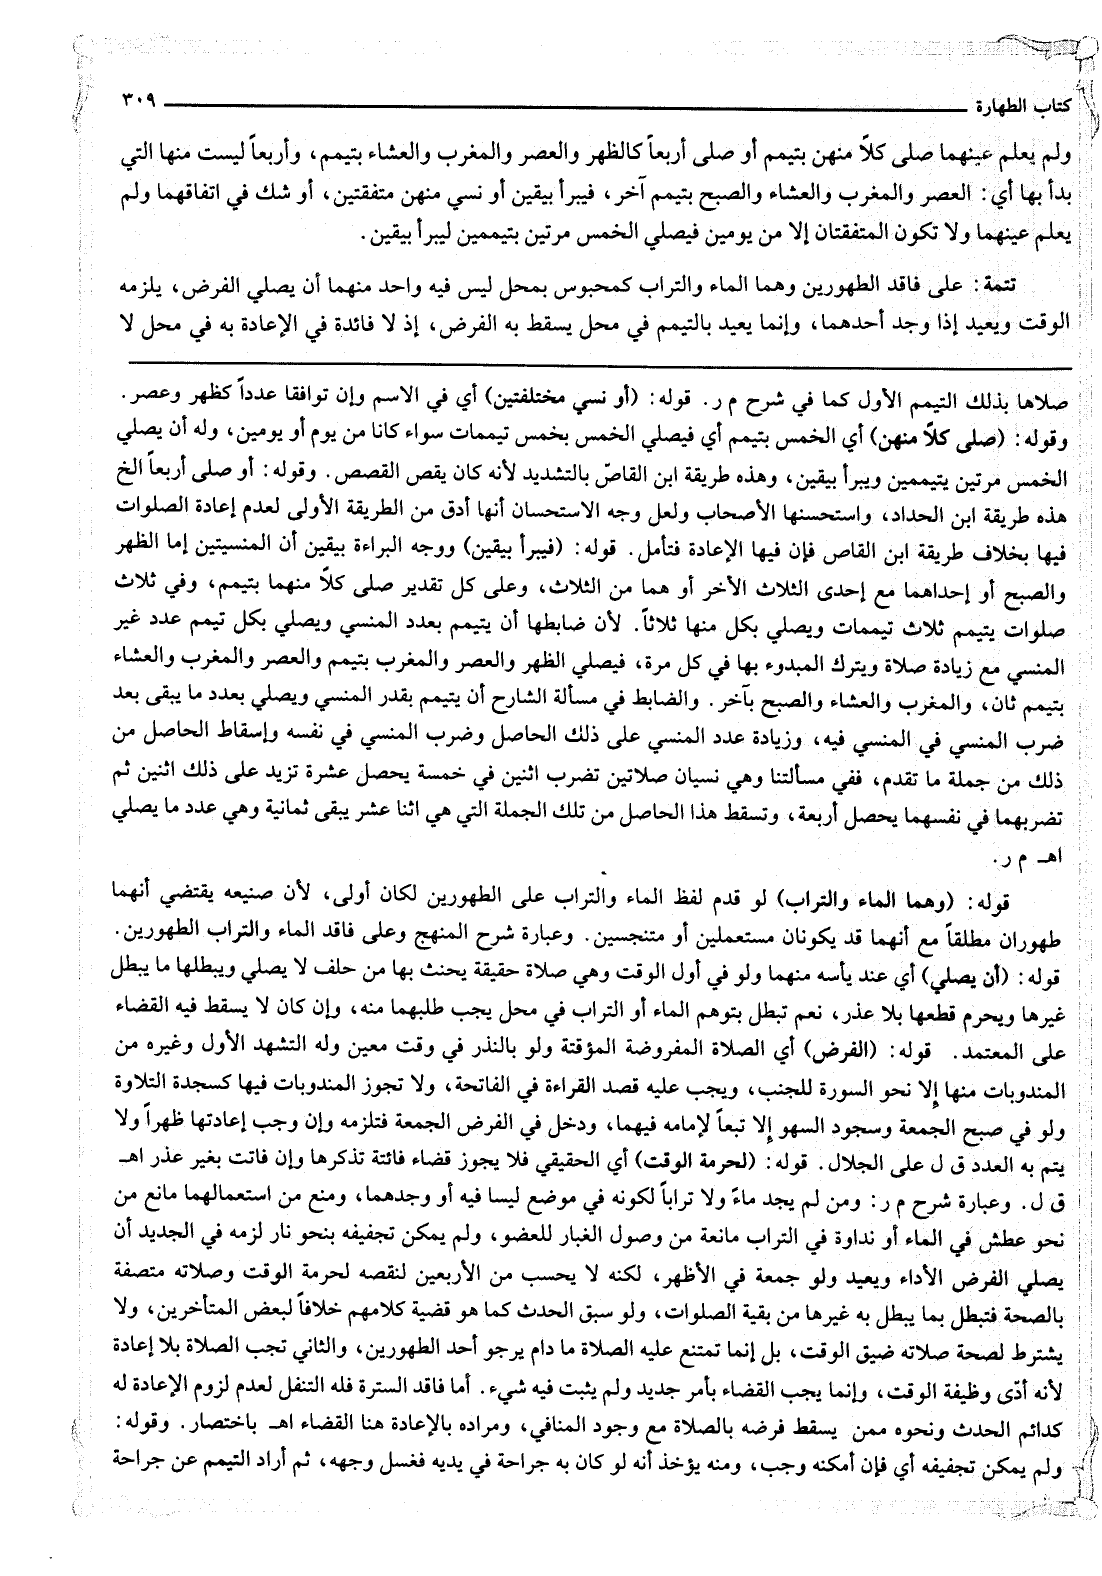 كتاب الطهارة ٣٠٩
ولم يعلم عينهما صلى كلاً منهن بتيمم أو صلى أربعاً كالظهر والعصر والمغرب والعشاء بتيمم، وأربعاً ليست منها التي
بدأ بها أي: العصر والمغرب والعشاء والصبح بتيمم آخر، فيبرأ بيقين أو نسي منهن متفقتين، أو شك في اتفاقهما ولم
يعلم عينهما ولا تكون المتفقتان إلا من يومين فيصلي الخمس مرتين بتيممين ليبرأ بيقين.
تتمة: على فاقد الطهورين وهما الماء والتراب كمحبوس بمحل ليس فيه واحد منهما أن يصلي الفرض، يلزمه
الوقت ويعيد إذا وجد أحدهما، وإنما يعيد بالتيمم في محل يسقط به الفرض، إذ لا فائدة في الإعادة به في محل لا
صلاها بذلك التيمم الأول كما في شرح م ر. قوله: (أو نسي مختلفتين) أي في الاسم وإن توافقا عدداً كظهر وعصر.
وقوله: (صلى كلاً منهن) أي الخمس بتيمم أي فيصلي الخمس بخمس تيممات سواء كانا من يوم أو يومين، وله أن يصلي
الخمس مرتين يتيممين ويبرأ بيقين، وهذه طريقة ابن القاصّ بالتشديد لأنه كان يقص القصص. وقوله: أو صلى أربعاً الخ
هذه طريقة ابن الحداد، واستحسنها الأصحاب ولعل وجه الاستحسان أنها أدق من الطريقة الأولى لعدم إعادة الصلوات
فيها بخلاف طريقة ابن القاص فإن فيها الإعادة فتأمل. قوله: (فيبرأ بيقين) ووجه البراءة بيقين أن المنسيتين إما الظهر
والصبح أو إحداهما مع إحدى الثلاث الأخر أو هما من الثلاث، وعلى كل تقدير صلى كلاً منهما بتيمم، وفي ثلاث
صلوات يتيمم ثلاث تيممات ويصلي بكل منها ثلاثاً. لأن ضابطها أن يتيمم بعدد المنسي ويصلي بكل تيمم عدد غير
المنسي مع زيادة صلاة ويترك المبدوء بها في كل مرة، فيصلي الظهر والعصر والمغرب بتيمم والعصر والمغرب والعشاء
بتيمم ثان، والمغرب والعشاء والصبح بآخر. والضابط في مسألة الشارح أن يتيمم بقدر المنسي ويصلي بعدد ما يبقى بعد
ضرب المنسي في المنسي فيه، وزيادة عدد المنسي على ذلك الحاصل وضرب المنسي في نفسه وإسقاط الحاصل من
ذلك من جملة ما تقدم، ففي مسألتنا وهي نسيان صلاتين تضرب اثنين في خمسة يحصل عشرة تزيد على ذلك اثنين ثم
تضربهما في نفسهما يحصل أربعة، وتسقط هذا الحاصل من تلك الجملة التي هي اثنا عشر يبقى ثمانية وهي عدد ما يصلي
اهـ م ر.
قوله: (وهما الماء والتراب) لو قدم لفظ الماء والتراب على الطهورين لكان أولى، لأن صنيعه يقتضي أنهما
طهوران مطلقاً مع أنهما قد يكونان مستعملين أو متنجسين. وعبارة شرح المنهج وعلى فاقد الماء والتراب الطهورين.
قوله: (أن يصلي) أي عند يأسه منهما ولو في أول الوقت وهي صلاة حقيقة يحنث بها من حلف لا يصلي ويبطلها ما يبطل
غيرها ويحرم قطعها بلا عذر، نعم تبطل بتوهم الماء أو التراب في محل يجب طلبهما منه، وإن كان لا يسقط فيه القضاء
على المعتمد. قوله: (الفرض) أي الصلاة المفروضة المؤقتة ولو بالنذر في وقت معين وله التشهد الأول وغيره من
المندوبات منها إلا نحو السورة للجنب، ويجب عليه قصد القراءة في الفاتحة، ولا تجوز المندوبات فيها كسجدة التلاوة
ولو في صبح الجمعة وسجود السهو إلا تبعاً لإمامه فيهما، ودخل في الفرض الجمعة فتلزمه وإن وجب إعادتها ظهراً ولا
يتم به العدد ق ل على الجلال. قوله: (لحرمة الوقت) أي الحقيقي فلا يجوز قضاء فائتة تذكرها وإن فاتت بغير عذر اهـ
ق ل. وعبارة شرح م ر: ومن لم يجد ماءً ولا تراباً لكونه في موضع ليسا فيه أو وجدهما، ومنع من استعمالهما مانع من
نحو عطش في الماء أو نداوة في التراب مانعة من وصول الغبار للعضو، ولم يمكن تجفيفه بنحو نار لزمه في الجديد أن
يصلي الفرض الأداء ويعيد ولو جمعة في الأظهر، لكنه لا يحسب من الأربعين لنقصه لحرمة الوقت وصلاته متصفة
بالصحة فتبطل بما يبطل به غيرها من بقية الصلوات، ولو سبق الحدث كما هو قضية كلامهم خلافاً لبعض المتأخرين، ولا
يشترط لصحة صلاته ضيق الوقت، بل إنما تمتنع عليه الصلاة ما دام يرجو أحد الطهورين، والثاني تجب الصلاة بلا إعادة
لأنه أدّى وظيفة الوقت، وإنما يجب القضاء بأمر جديد ولم يثبت فيه شيء. أما فاقد السترة فله التنفل لعدم لزوم الإعادة له
كدائم الحدث ونحوه ممن يسقط فرضه بالصلاة مع وجود المنافي، ومراده بالإعادة هنا القضاء اهـ باختصار. وقوله:
ولم يمكن تجفيفه أي فإن أمكنه وجب، ومنه يؤخذ أنه لو كان به جراحة في يديه فغسل وجهه، ثم أراد التيمم عن جراحة